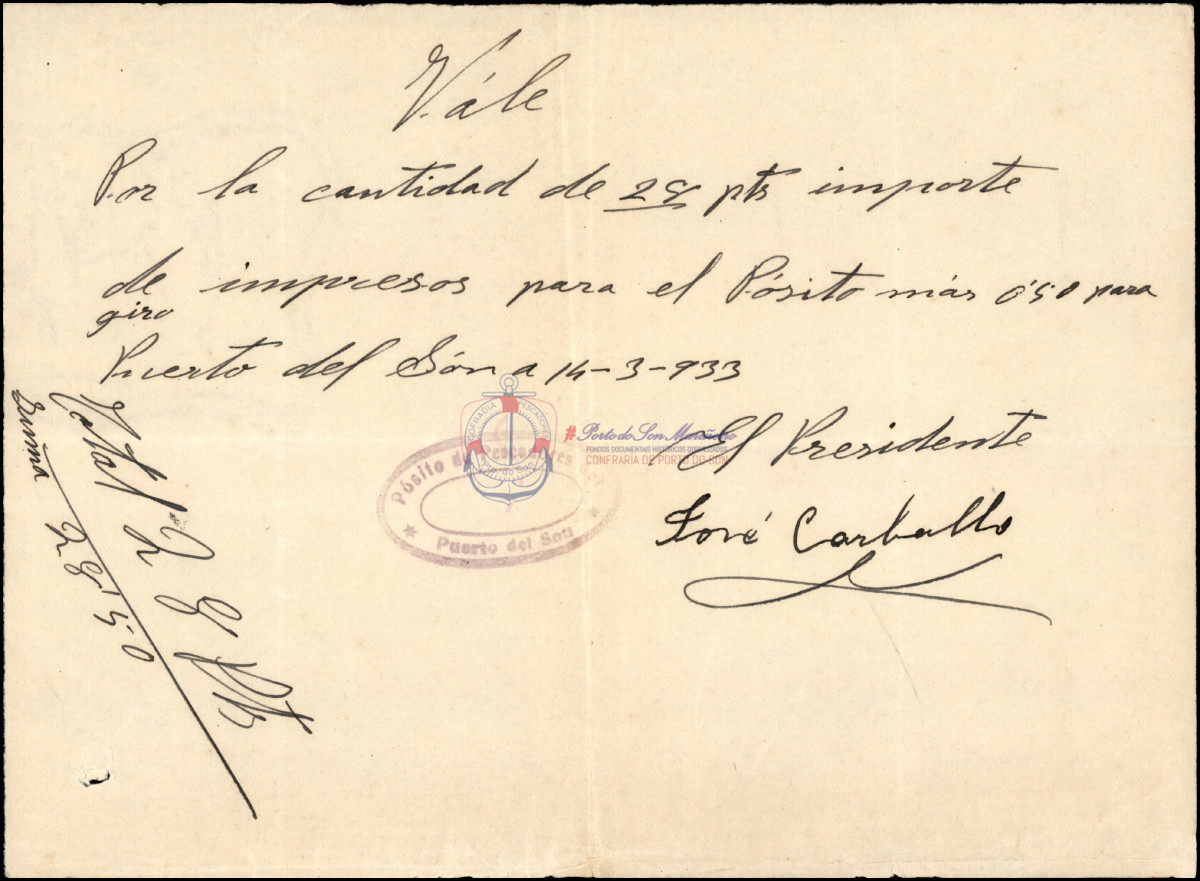 Vále
Por la cantidad de 28 pts importe
de impresos para el Pósito más 0'50 para
giro
Puerto del Són a 14-3-933
El Presidente
José Carballo
Total 28 Pts
Suma 28'50
Pósito de Pescadores
Puerto del Son
COFRADIA PESCADORES
Pto do Son
#Porto do Son Mariñeiro
FONDOS DOCUMENTAIS HISTÓRICOS DIXITALIZADOS
CONFRARÍA DE PORTO DO SON